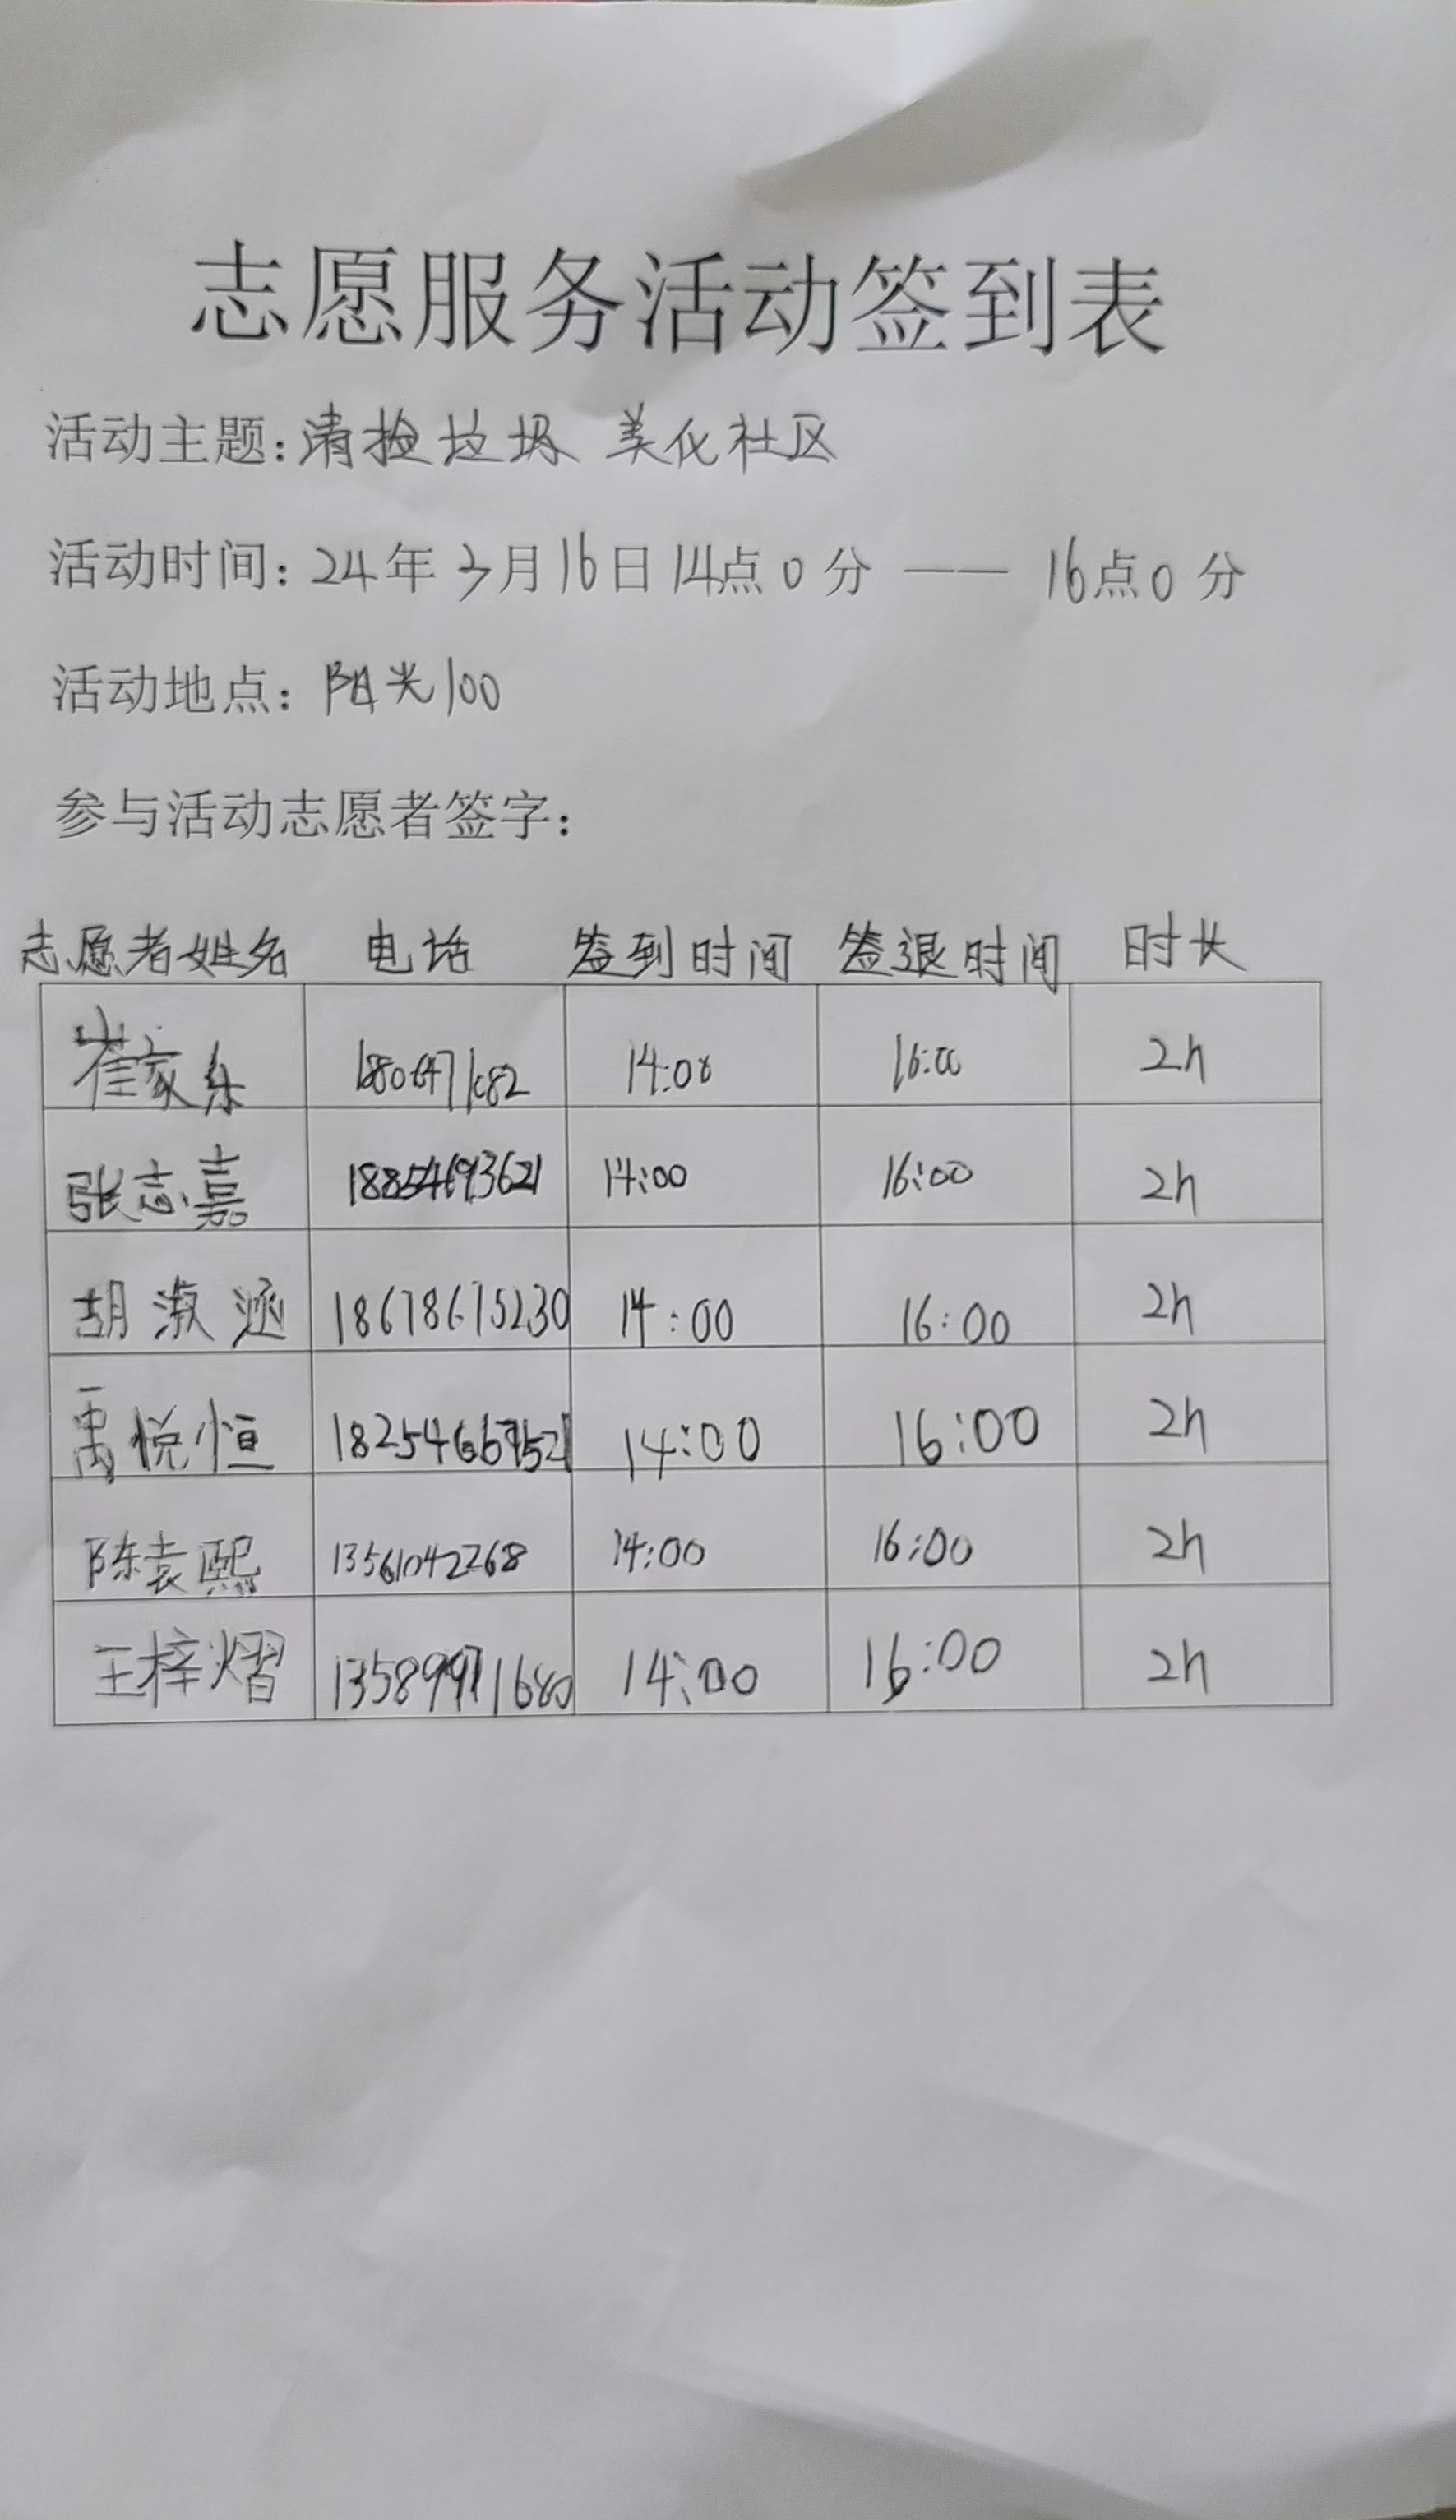 志愿服务活动签到表
活动主题：清捡垃圾 美化社区
活动时间：24年3月16日14点0分 —— 16点0分
活动地点：阳光100
参与活动志愿者签字：
志愿者姓名 电话 签到时间 签退时间 时长
崔家乐 14:00 16:00 2h
张志嘉 18854693621 14:00 16:00 2h
胡淑涵 18678675230 14:00 16:00 2h
禹悦恒 14:00 16:00 2h
陈袁熙 13561042268 14:00 16:00 2h
王梓熠 13589971680 14:00 16:00 2h